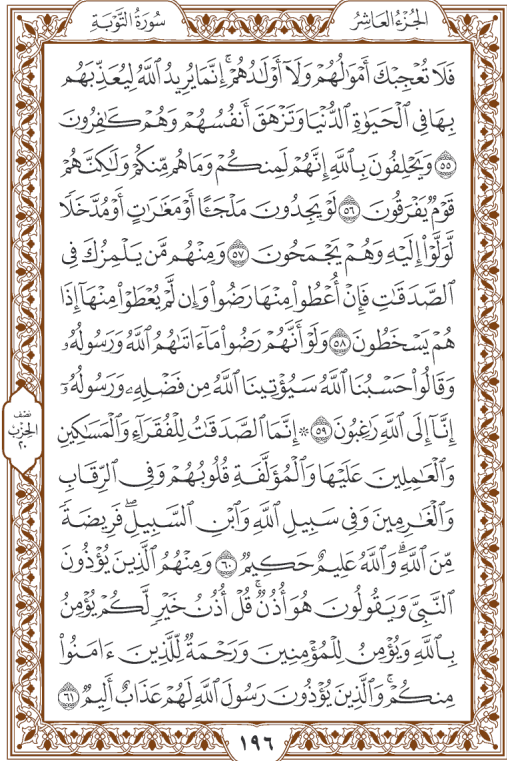 الجُزْءُ العَاشِرُ
سُورَةُ التَّوْبَةِ
فَلَا تُعْجِبْكَ أَمْوَٰلُهُمْ وَلَآ أَوْلَٰدُهُمْ ۚ إِنَّمَا يُرِيدُ ٱللَّهُ لِيُعَذِّبَهُم
بِهَا فِي ٱلْحَيَوٰةِ ٱلدُّنْيَا وَتَزْهَقَ أَنفُسُهُمْ وَهُمْ كَٰفِرُونَ
٥٥ وَيَحْلِفُونَ بِٱللَّهِ إِنَّهُمْ لَمِنكُمْ وَمَا هُم مِّنكُمْ وَلَٰكِنَّهُمْ
قَوْمٌ يَفْرَقُونَ ٥٦ لَوْ يَجِدُونَ مَلْجَـًٔا أَوْ مَغَٰرَٰتٍ أَوْ مُدَّخَلًا
لَّوَلَّوْا۟ إِلَيْهِ وَهُمْ يَجْمَحُونَ ٥٧ وَمِنْهُم مَّن يَلْمِزُكَ فِي
ٱلصَّدَقَٰتِ فَإِنْ أُعْطُوا۟ مِنْهَا رَضُوا۟ وَإِن لَّمْ يُعْطَوْا۟ مِنْهَآ إِذَا
هُمْ يَسْخَطُونَ ٥٨ وَلَوْ أَنَّهُمْ رَضُوا۟ مَآ ءَاتَىٰهُمُ ٱللَّهُ وَرَسُولُهُۥ
وَقَالُوا۟ حَسْبُنَا ٱللَّهُ سَيُؤْتِينَا ٱللَّهُ مِن فَضْلِهِۦ وَرَسُولُهُۥٓ
إِنَّآ إِلَى ٱللَّهِ رَٰغِبُونَ ٥٩ ۞ إِنَّمَا ٱلصَّدَقَٰتُ لِلْفُقَرَآءِ وَٱلْمَسَٰكِينِ
وَٱلْعَٰمِلِينَ عَلَيْهَا وَٱلْمُؤَلَّفَةِ قُلُوبُهُمْ وَفِي ٱلرِّقَابِ
وَٱلْغَٰرِمِينَ وَفِي سَبِيلِ ٱللَّهِ وَٱبْنِ ٱلسَّبِيلِ ۖ فَرِيضَةً
مِّنَ ٱللَّهِ ۗ وَٱللَّهُ عَلِيمٌ حَكِيمٌ ٦٠ وَمِنْهُمُ ٱلَّذِينَ يُؤْذُونَ
ٱلنَّبِيَّ وَيَقُولُونَ هُوَ أُذُنٌ ۚ قُلْ أُذُنُ خَيْرٍ لَّكُمْ يُؤْمِنُ
بِٱللَّهِ وَيُؤْمِنُ لِلْمُؤْمِنِينَ وَرَحْمَةٌ لِّلَّذِينَ ءَامَنُوا۟
مِنكُمْ ۚ وَٱلَّذِينَ يُؤْذُونَ رَسُولَ ٱللَّهِ لَهُمْ عَذَابٌ أَلِيمٌ ٦١
نصْف
الحِزْب
٢٠
١٩٦